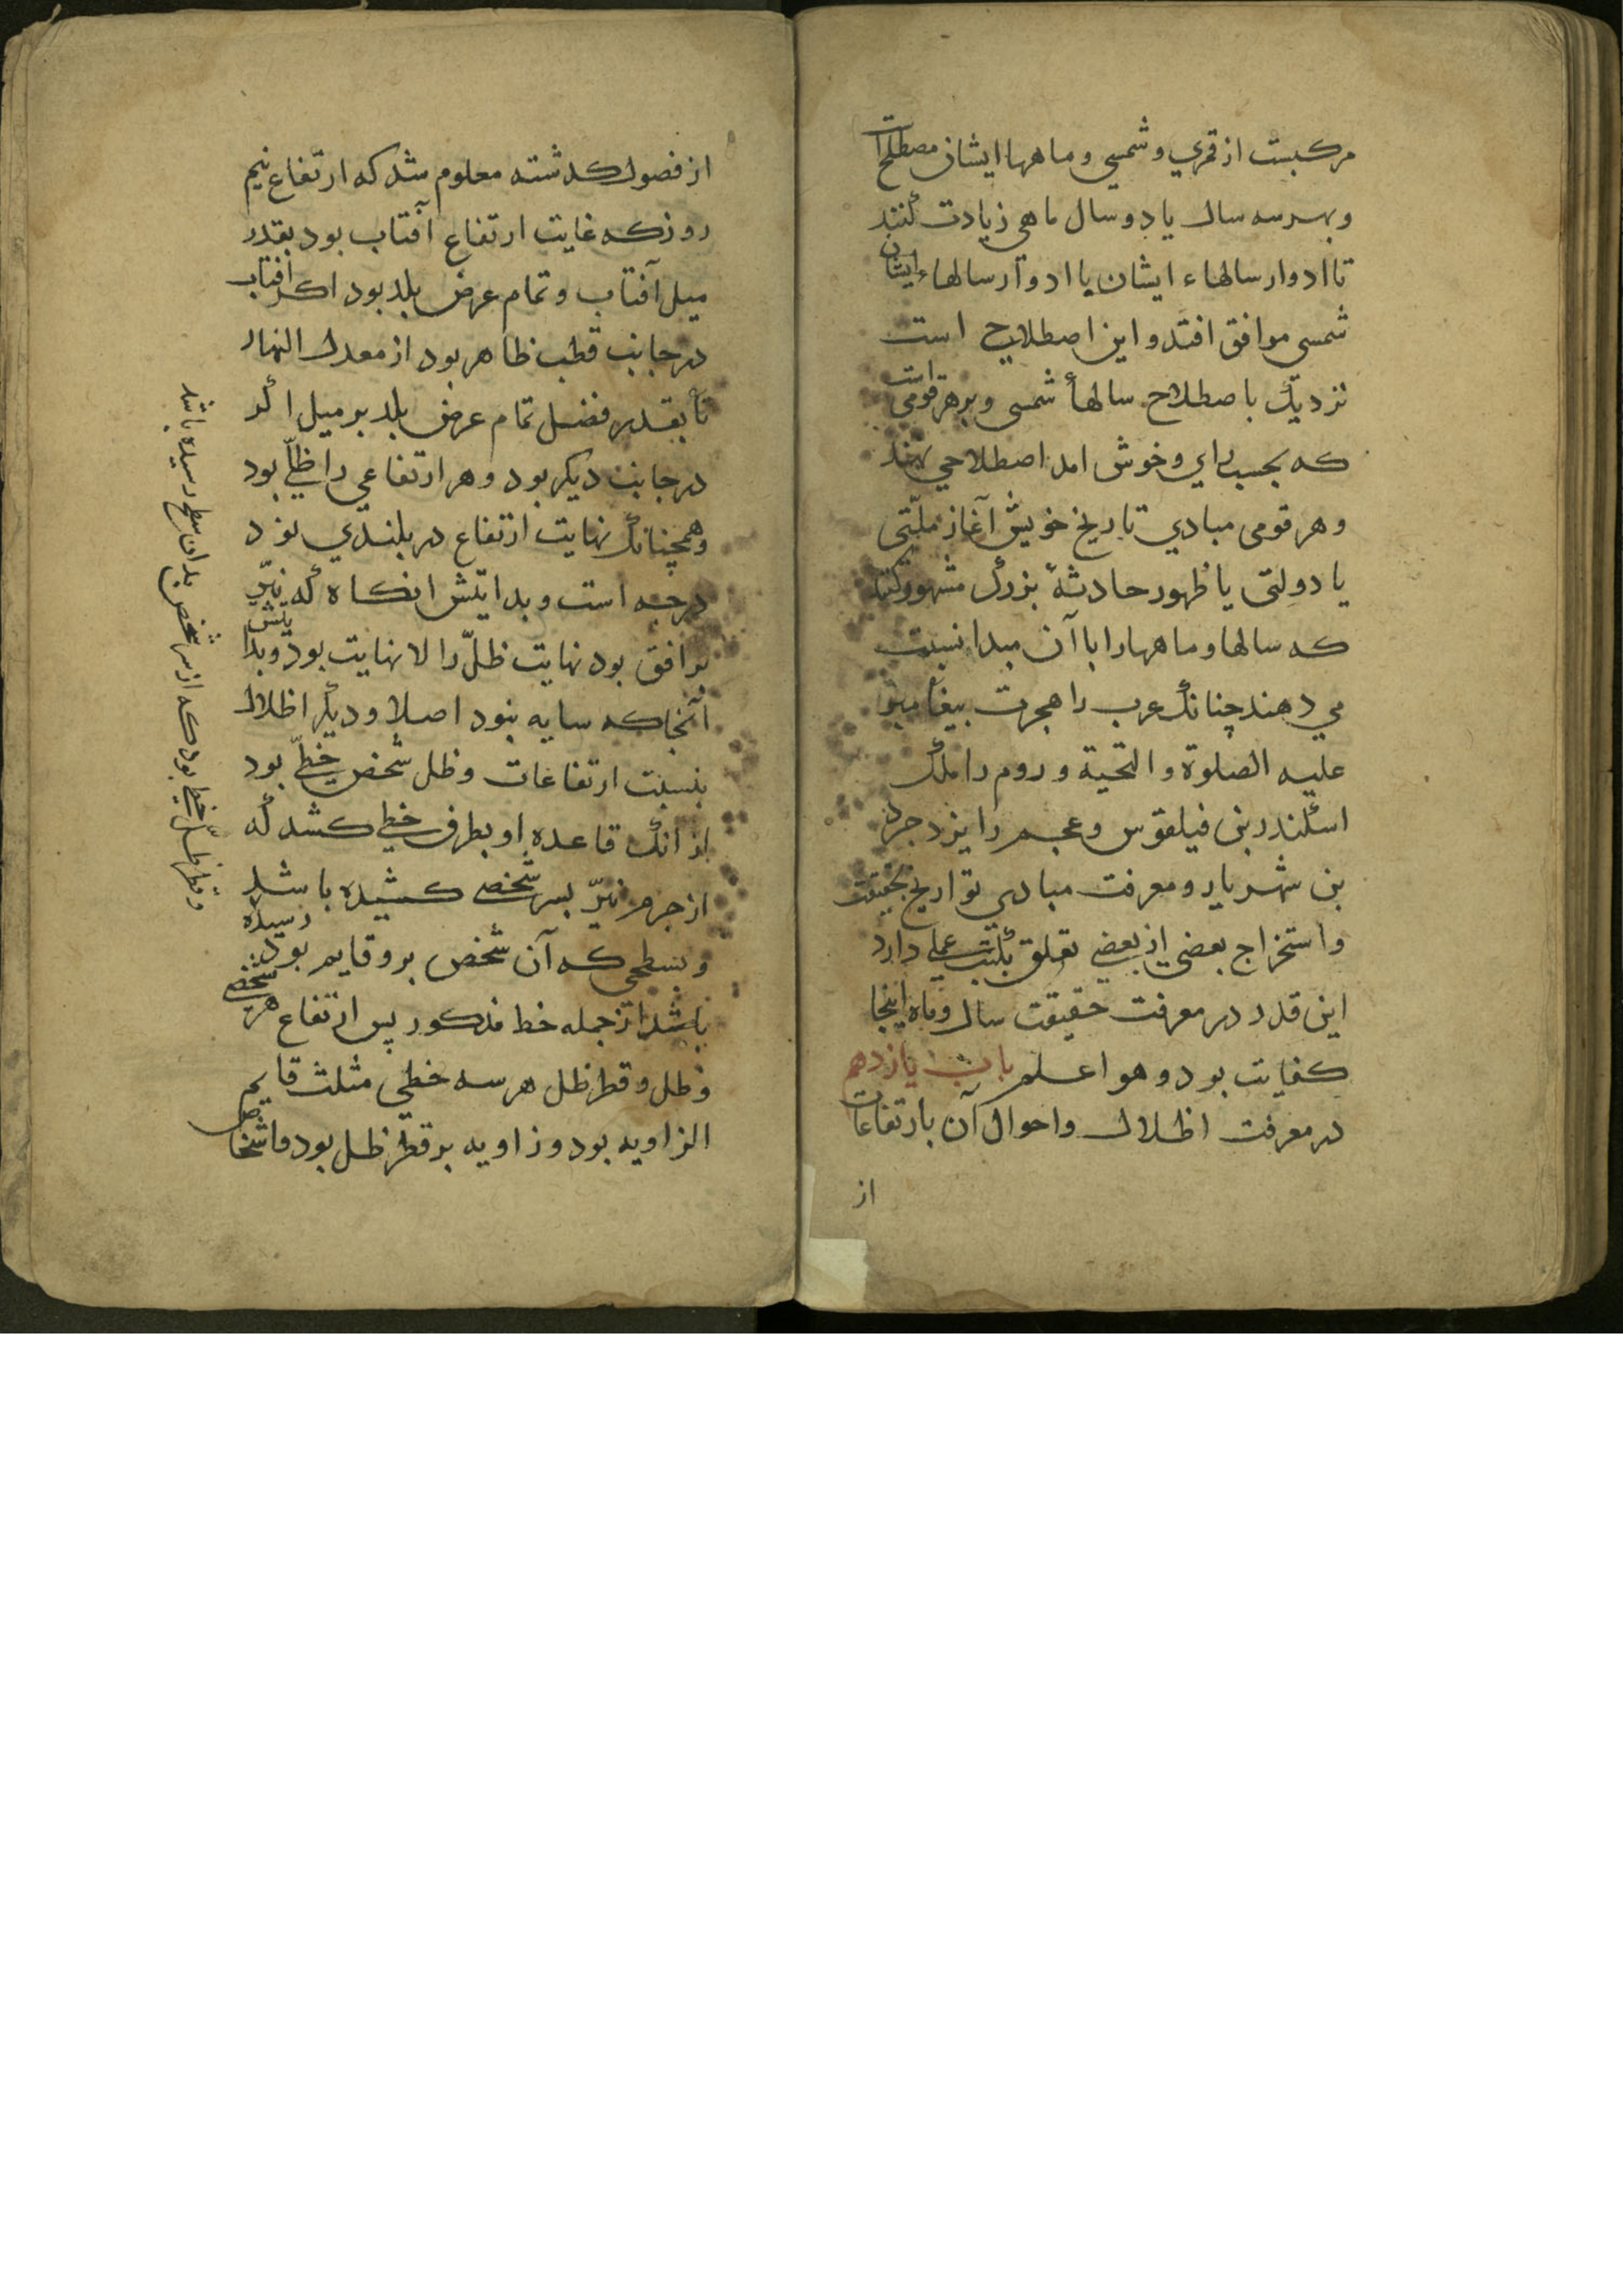 مرکبست از قمري و شمسي و ماهها ایشان مصطلح است
و بهر سه سال یا دو سال ماهي زیادت کنند
تا ادوار سالهاء ایشان با ادوار سالهاء ایشان
شمسی موافق افتد و این اصطلاح است
نزدیک باصطلاح سالهأ شمسی و بر هر قومی است
که بحسب راي و خوش امد اصطلاحي نهند
و هر قومی مبادي تاریخ خویش آغاز ملّتی
یا دولتی یا ظهور حادثهٔ بزرک مشهور کنند
که سالها و ماهها را با آن مبدا نسبت
مي دهند چنانک عرب را هجرت پیغامبر
علیه الصلوة و التحیة و روم را ملک
اسکندر بن فیلقوس و عجم را یزدجرد
بن شهریار و معرفت مبادي تواریخ بحقیقت
و استخراج بعضی از بعضي تعلق بکتب عملي دارد
این قدر در معرفت حقیقت سال و ماه اینجا
کفایت بود و هو اعلم باب یازدهم
در معرفت اظلال و احوال آن بارتفاعات
از
از فصول کدشته معلوم شد که ارتفاع نیم
روز که غایت ارتفاع آفتاب بود بقدر
میل آفتاب و تمام عرض بلد بود اکر افتاب
در جانب قطب ظاهر بود از معدل النهار
تا بقدر فضل تمام عرض بلد بر میل اکر
در جانب دیکر بود و هر ارتفاعي را ظلّي بود
و همچنانک نهایت ارتفاع در بلندي نود
درجه است و بدایتش انکاه که نیّر
بر افق بود نهایت ظلّ را لا نهایت بود و بدایتش
آنجا که سایه نبود اصلا و دیکر اظلال
بنسبت ارتفاعات و ظل شخص خطّي بود
از انک قاعده او بطرف خطي کشد که
از جرم نیّر بسر شخصي کشیده باشد
و بسطحي که آن شخص برو قایم بود رسیده
باشد از جمله خط مذکور پس ارتفاع هر شخصي
و ظل و قطر ظل هر سه خطي مثلث قایم
الزاویه بود و زاویه بر قطر ظل بود و اشخاص
و قطر ظلّ خطي بود که از سر شخص بدان سطح رسیده باشد